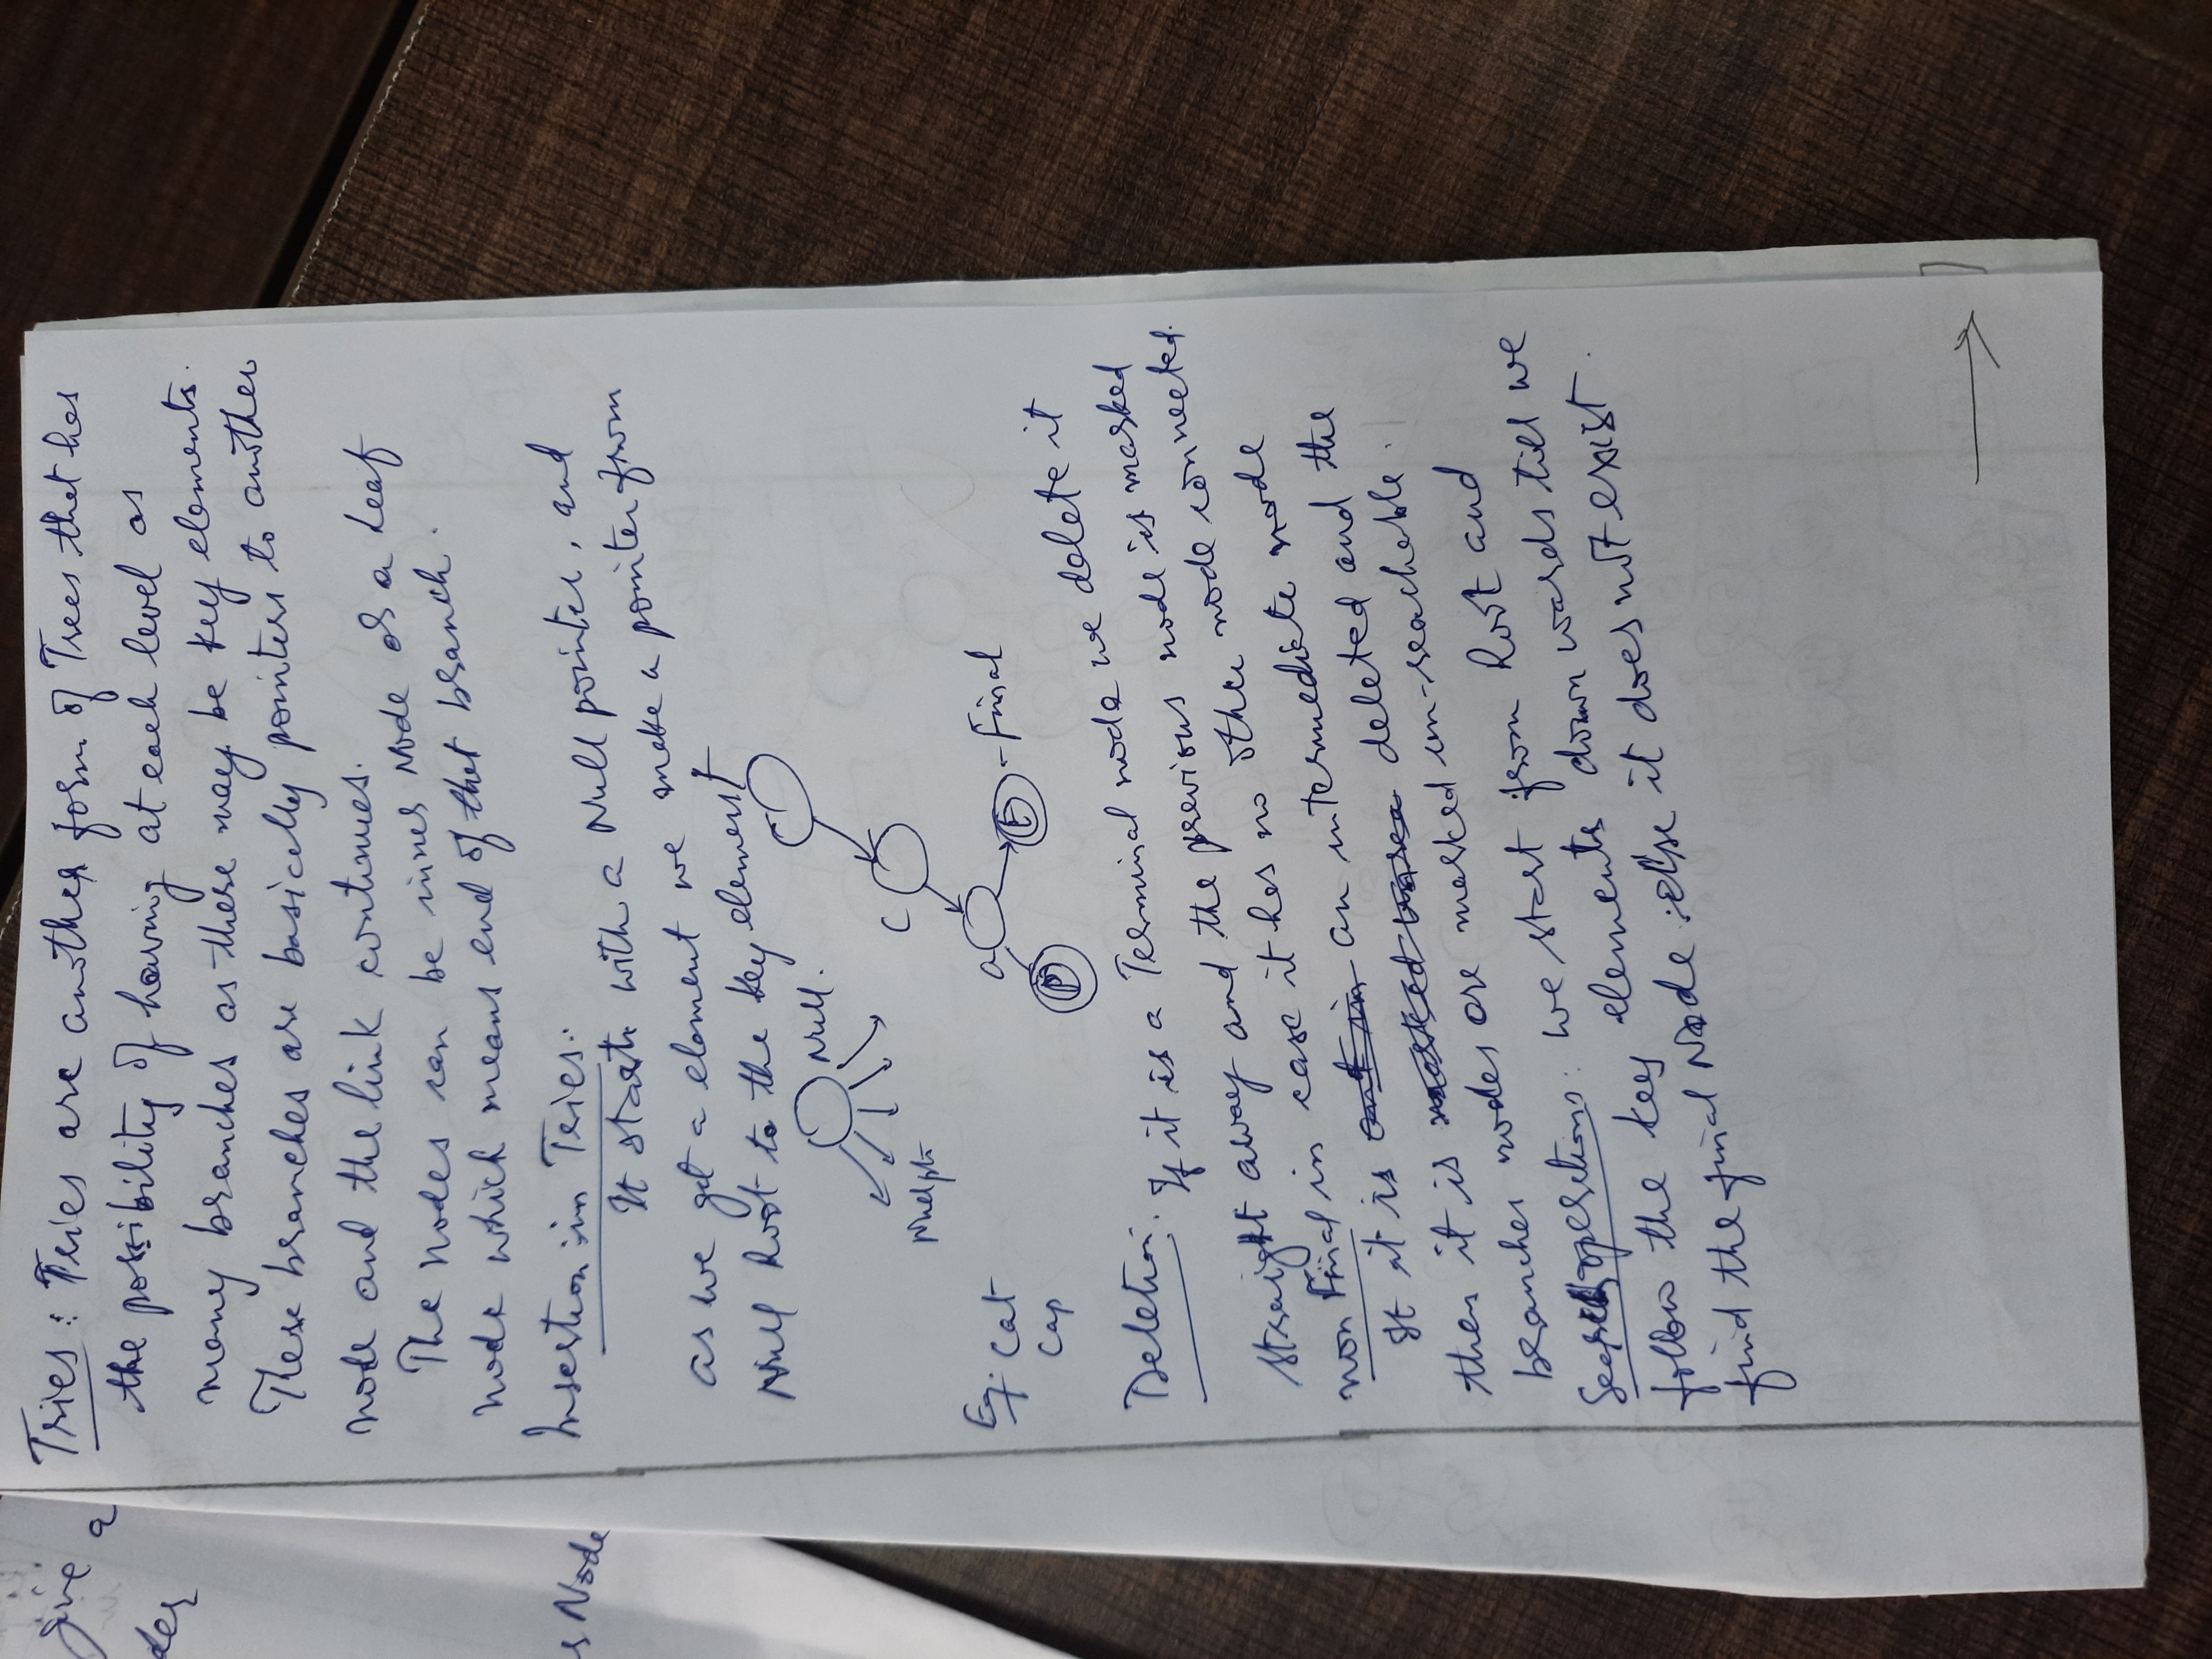 give a
der
s Node
Tries : Tries are another form of Trees that has
the possibility of having at each level as
many branches as there may be key elements.
These branches are basically pointers to another
node and the link continues.
The nodes can be inner Node or a Leaf
node which means end of that branch.
Insertion in Tries.
It starts with a Null pointer, and
as we get a element we make a pointer from
Null Root to the key element
Null.
Null ptr
C
a
P
t - Final
Eg. Cat
Cap
Deletion. If it is a Terminal node we delete it
straight away and the previous node is marked
non Final in case it has no other node connected.
If it is an intermediate node
then it is deleted and the
branches nodes are marked un-reachable.
Search operations: we start from Root and
follow the key elements down wards till we
find the final Node else it does not exist.